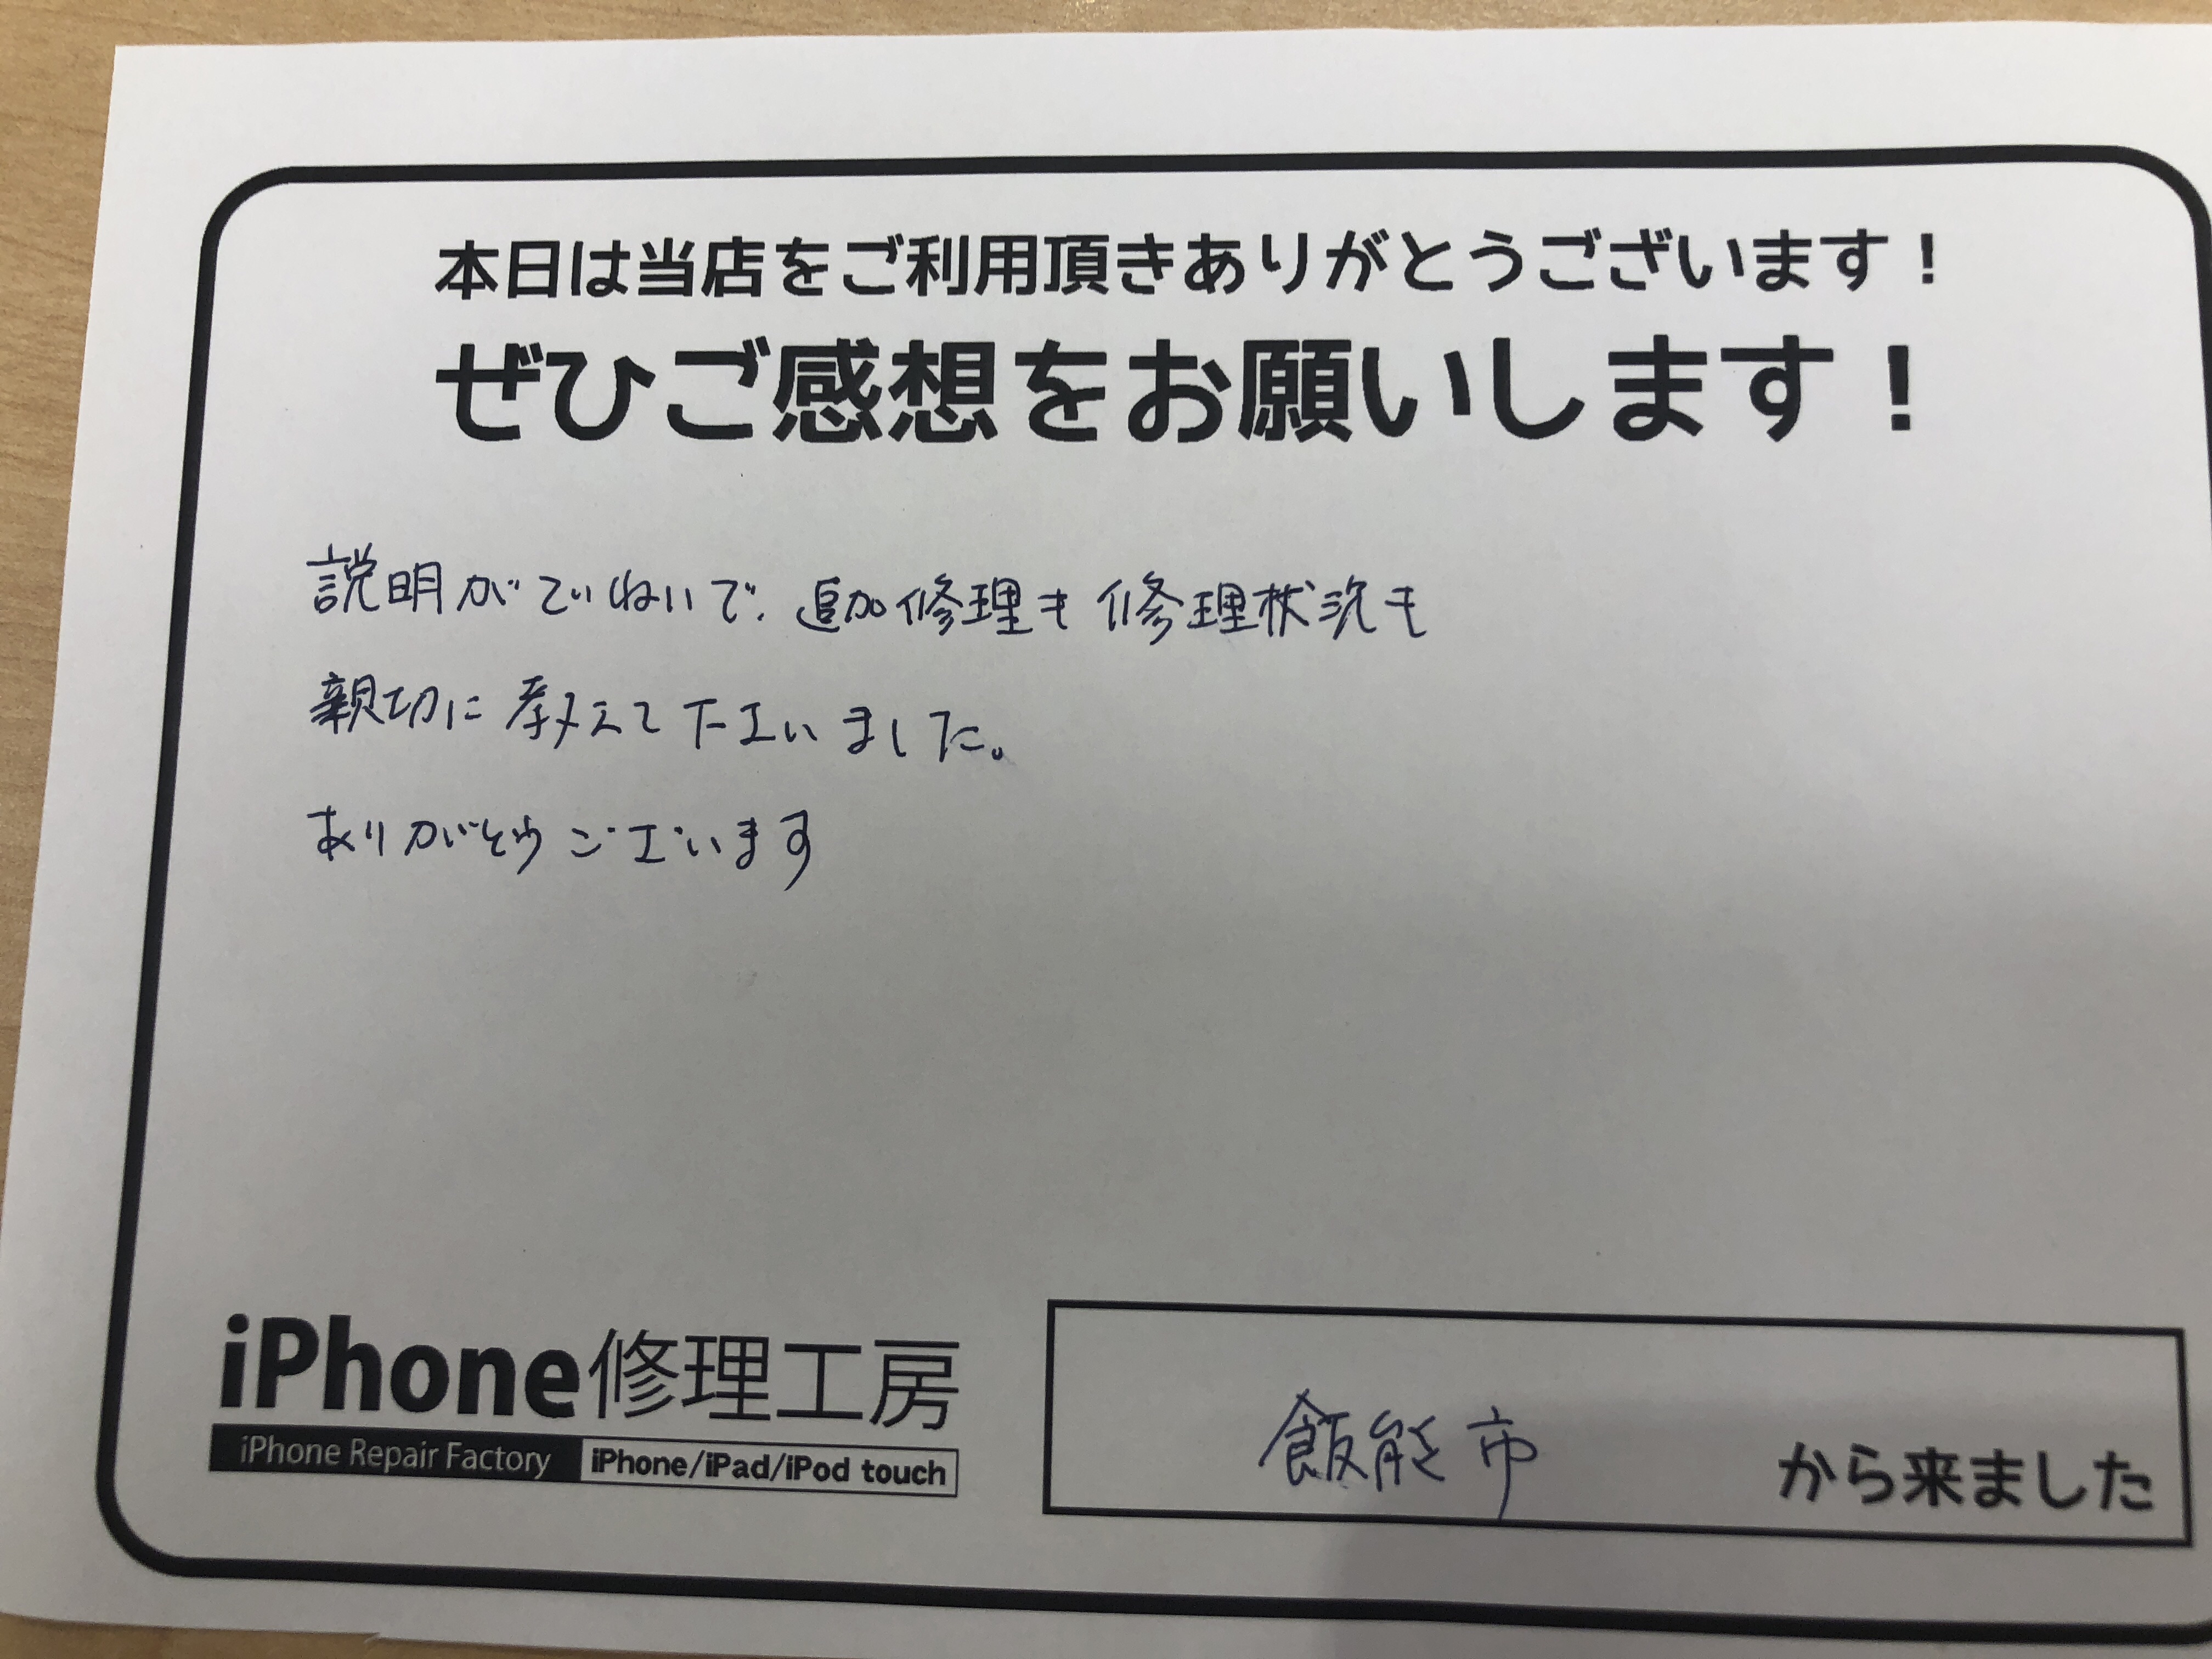 本日は当店をご利用頂きありがとうございます！
ぜひご感想をお願いします！
説明がていねいで、追加修理も修理状況も
親切に教えて下さいました。
ありがとうございます
iPhone修理工房
iPhone Repair Factory iPhone/iPad/iPod touch
飯能市 から来ました